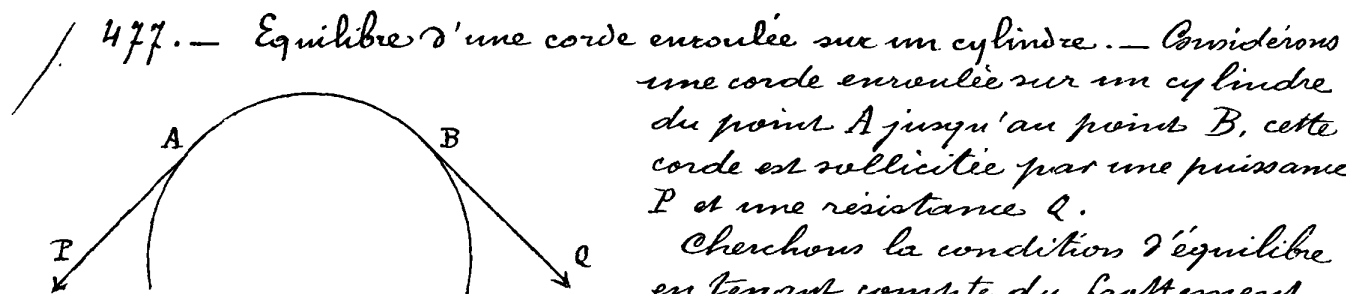 477. — Equilibre d'une corde enroulée sur un cylindre. — Considérons
une corde enroulée sur un cylindre
du point A jusqu'au point B, cette
corde est sollicitée par une puissance
P et une résistance Q.
Cherchons la condition d'équilibre
en tenant compte du frottement
A
B
P
Q